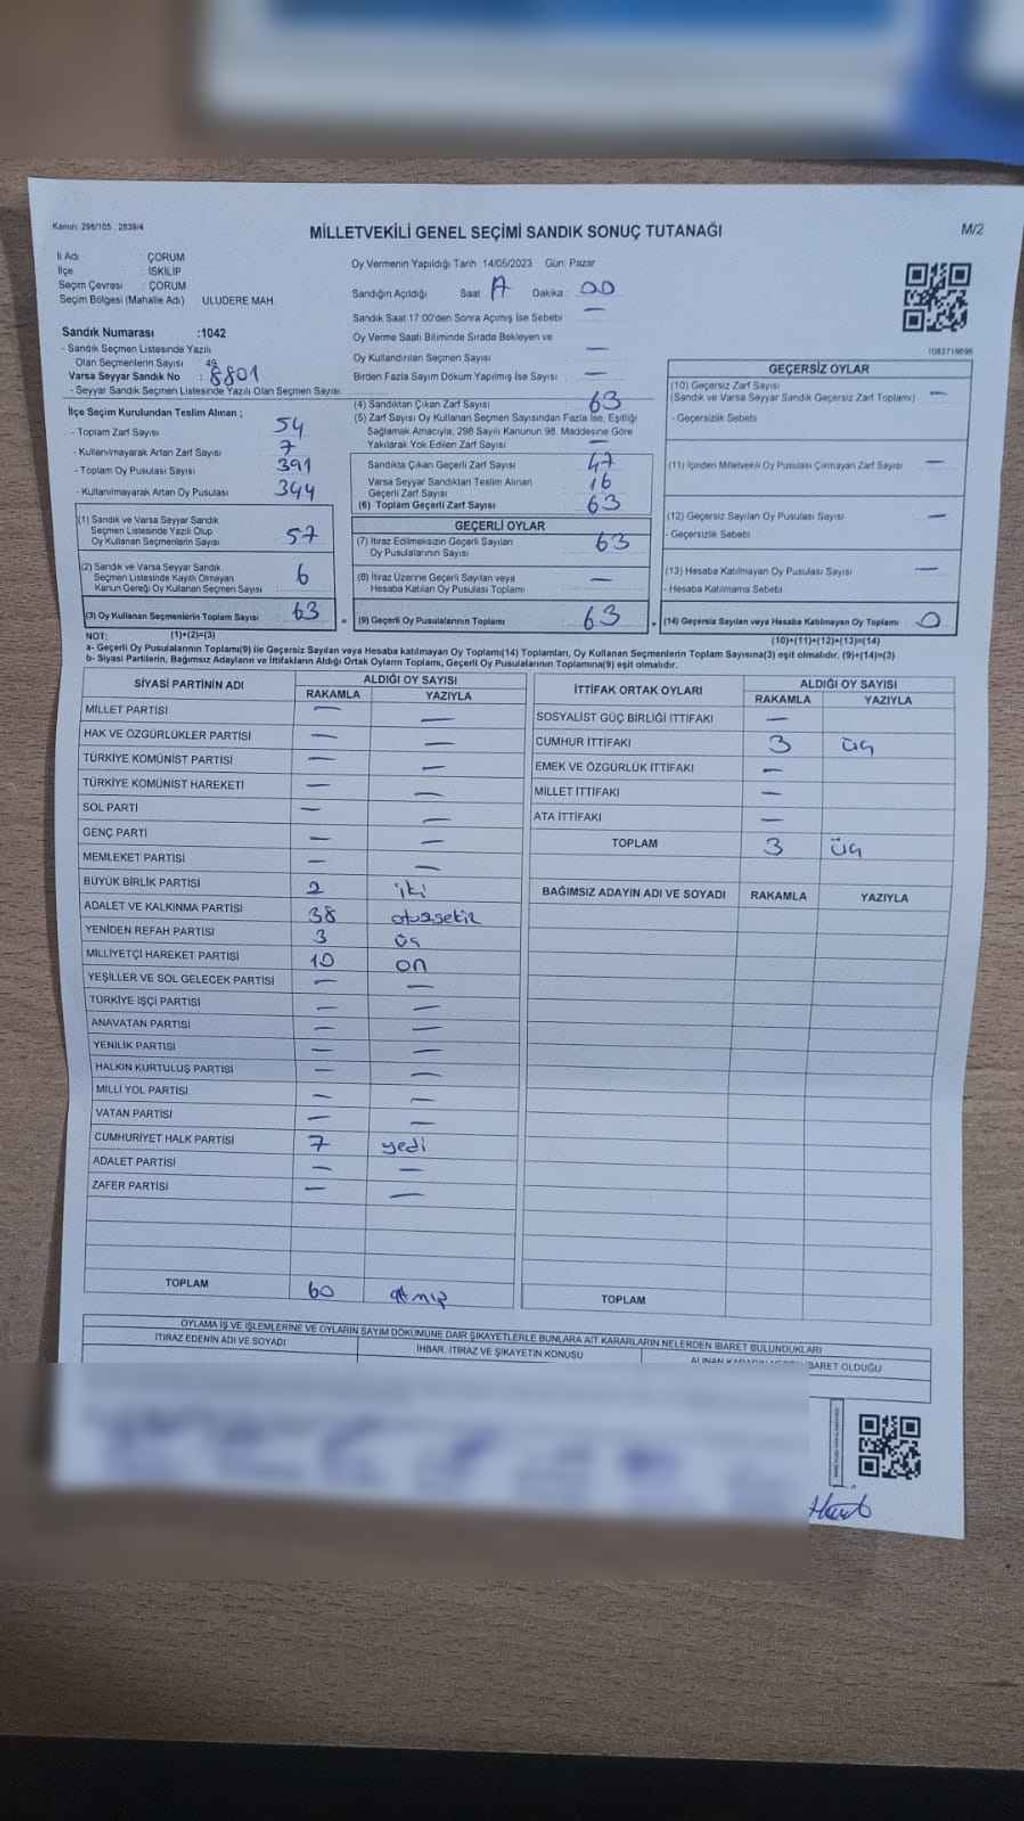 Kanun: 298/105 2839/4
MİLLETVEKİLİ GENEL SEÇİMİ SANDIK SONUÇ TUTANAĞI
M/2
İl Adı ÇORUM
İlçe İSKİLİP
Seçim Çevresi : ÇORUM
Seçim Bölgesi (Mahalle Adı) ULUDERE MAH.
Oy Vermenin Yapıldığı Tarih 14/05/2023 Gün: Pazar
Sandığın Açıldığı Saat Dakika: 00
Sandık Saat 17:00'den Sonra Açımış İse Sebebi —
Oy Verme Saati Bitiminde Sırada Bekleyen ve
Oy Kullandırılan Seçmen Sayısı —
Birden Fazla Sayım Döküm Yapılmış İse Sayısı —
Sandık Numarası :1042
- Sandık Seçmen Listesinde Yazılı
Olan Seçmenlerin Sayısı
Varsa Seyyar Sandık No : 8801
- Seyyar Sandık Seçmen Listesinde Yazılı Olan Seçmen Sayısı
İlçe Seçim Kurulundan Teslim Alınan ;
- Toplam Zarf Sayısı 54
- Kullanılmayarak Artan Zarf Sayısı 7
- Toplam Oy Pusulası Sayısı 391
- Kullanılmayarak Artan Oy Pusulası 344
(1) Sandık ve Varsa Seyyar Sandık
Seçmen Listesinde Yazılı Olup
Oy Kullanan Seçmenlerin Sayısı 57
(2) Sandık ve Varsa Seyyar Sandık
Seçmen Listesinde Kayıtlı Olmayan
Kanun Gereği Oy Kullanan Seçmen Sayısı 6
(3) Oy Kullanan Seçmenlerin Toplam Sayısı 63
(1)+(2)=(3)
(4) Sandıktan Çıkan Zarf Sayısı 63
(5) Zarf Sayısı Oy Kullanan Seçmen Sayısından Fazla İse, Eşitliği
Sağlamak Amacıyla, 298 Sayılı Kanunun 98. Maddesine Göre
Yakılarak Yok Edilen Zarf Sayısı —
Sandıkta Çıkan Geçerli Zarf Sayısı 47
Varsa Seyyar Sandıktan Teslim Alınan
Geçerli Zarf Sayısı 16
(6) Toplam Geçerli Zarf Sayısı 63
GEÇERLİ OYLAR
(7) İtiraz Edilmeksizin Geçerli Sayılan
Oy Pusulalarının Sayısı 63
(8) İtiraz Üzerine Geçerli Sayılan veya
Hesaba Katılan Oy Pusulası Toplamı —
= (9) Geçerli Oy Pusulalarının Toplamı 63
GEÇERSİZ OYLAR
(10) Geçersiz Zarf Sayısı
(Sandık ve Varsa Seyyar Sandık Geçersiz Zarf Toplamı) —
- Geçersizlik Sebebi
(11) İçinden Milletvekili Oy Pusulası Çıkmayan Zarf Sayısı —
(12) Geçersiz Sayılan Oy Pusulası Sayısı —
- Geçersizlik Sebebi
(13) Hesaba Katılmayan Oy Pusulası Sayısı —
- Hesaba Katılmama Sebebi
+ (14) Geçersiz Sayılan veya Hesaba Katılmayan Oy Toplamı 0
(10)+(11)+(12)+(13)=(14)
NOT:
a- Geçerli Oy Pusulalarının Toplamı(9) ile Geçersiz Sayılan veya Hesaba katılmayan Oy Toplamı(14) Toplamları, Oy Kullanan Seçmenlerin Toplam Sayısına(3) eşit olmalıdır. (9)+(14)=(3)
b- Siyasi Partilerin, Bağımsız Adayların ve İttifakların Aldığı Ortak Oyların Toplamı, Geçerli Oy Pusulalarının Toplamına(9) eşit olmalıdır.
SİYASİ PARTİNİN ADI ALDIĞI OY SAYISI
RAKAMLA YAZIYLA
MİLLET PARTİSİ — —
HAK VE ÖZGÜRLÜKLER PARTİSİ — —
TÜRKİYE KOMÜNİST PARTİSİ — —
TÜRKİYE KOMÜNİST HAREKETİ — —
SOL PARTİ — —
GENÇ PARTİ — —
MEMLEKET PARTİSİ — —
BÜYÜK BİRLİK PARTİSİ 2 iki
ADALET VE KALKINMA PARTİSİ 38 otuzsekiz
YENİDEN REFAH PARTİSİ 3 üç
MİLLİYETÇİ HAREKET PARTİSİ 10 on
YEŞİLLER VE SOL GELECEK PARTİSİ — —
TÜRKİYE İŞÇİ PARTİSİ — —
ANAVATAN PARTİSİ — —
YENİLİK PARTİSİ — —
HALKIN KURTULUŞ PARTİSİ — —
MİLLİ YOL PARTİSİ — —
VATAN PARTİSİ — —
CUMHURİYET HALK PARTİSİ 7 yedi
ADALET PARTİSİ — —
ZAFER PARTİSİ — —
TOPLAM 60 atmış
İTTİFAK ORTAK OYLARI ALDIĞI OY SAYISI
RAKAMLA YAZIYLA
SOSYALİST GÜÇ BİRLİĞİ İTTİFAKI —
CUMHUR İTTİFAKI 3 üç
EMEK VE ÖZGÜRLÜK İTTİFAKI —
MİLLET İTTİFAKI —
ATA İTTİFAKI —
TOPLAM 3 üç
BAĞIMSIZ ADAYIN ADI VE SOYADI RAKAMLA YAZIYLA
TOPLAM
OYLAMA İŞ VE İŞLEMLERİNE VE OYLARIN SAYIM DÖKÜMÜNE DAİR ŞİKAYETLERLE BUNLARA AİT KARARLARIN NELERDEN İBARET BULUNDUKLARI
İTİRAZ EDENİN ADI VE SOYADI
İHBAR, İTİRAZ VE ŞİKAYETİN KONUSU
BARET OLDUĞU